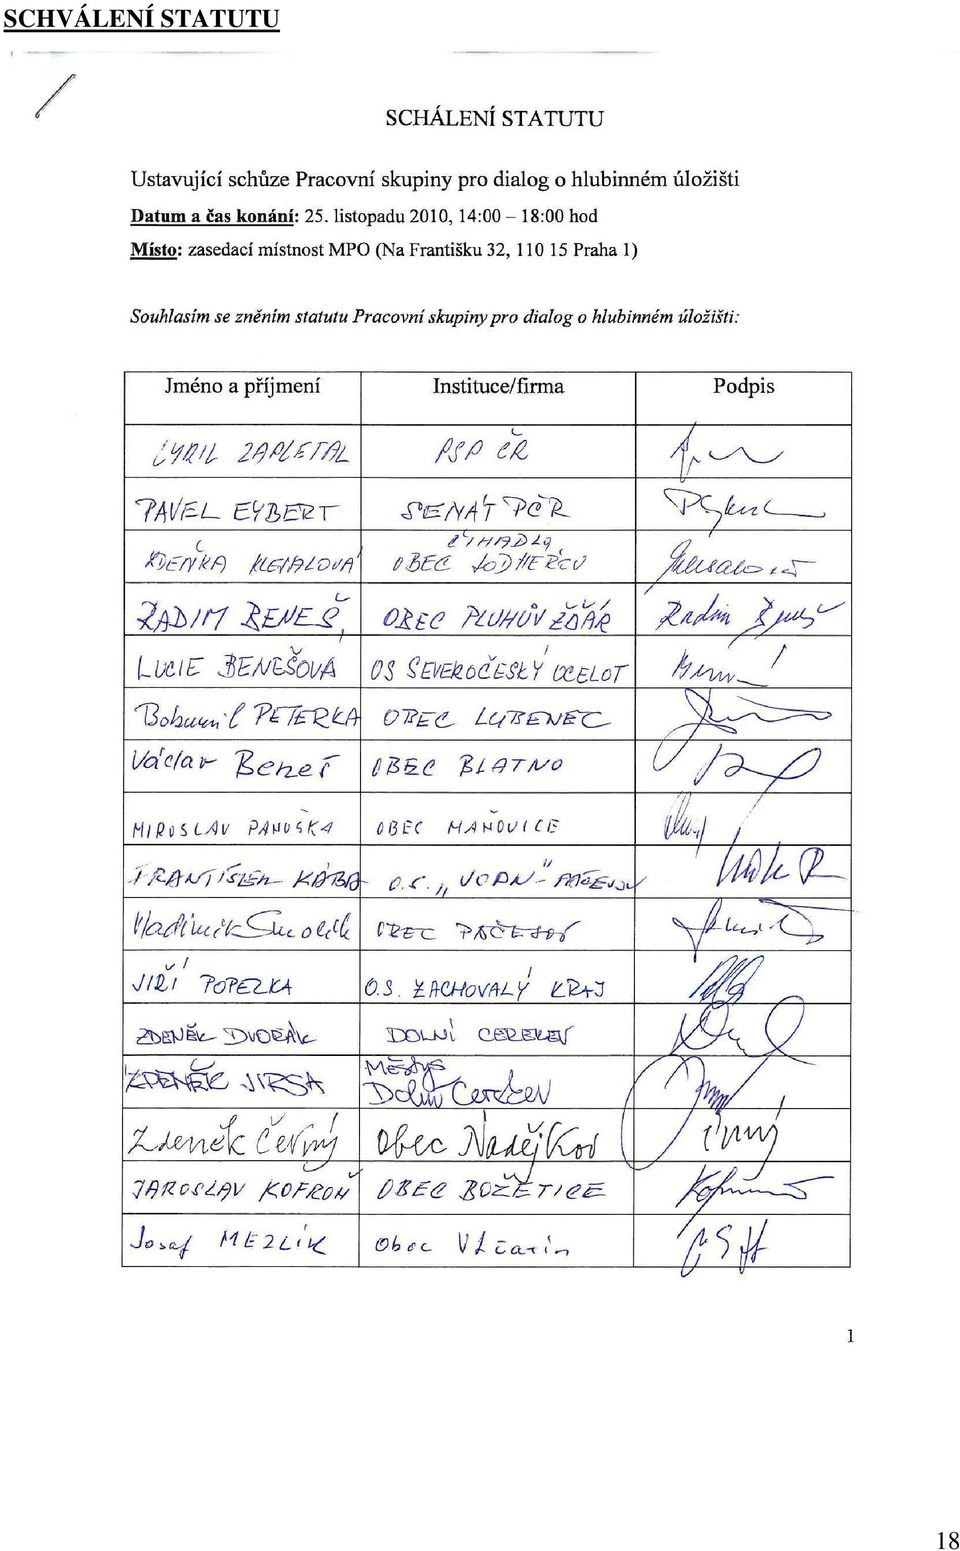 SCHVÁLENÍ STATUTU
SCHÁLENÍ STATUTU
Ustavující schůze Pracovní skupiny pro dialog o hlubinném úložišti
Datum a čas konání: 25. listopadu 2010, 14:00 – 18:00 hod
Místo: zasedací místnost MPO (Na Františku 32, 110 15 Praha 1)
Souhlasím se zněním statutu Pracovní skupiny pro dialog o hlubinném úložišti:
Jméno a příjmení Instituce/firma Podpis
CYRIL ZAPLETAL PSP ČR
PAVEL EYBERT SENÁT PČR
ČIHADLA,
ZDEŇKA OBEC LODHÉŘOV
RADIM BENEŠ, OBEC PLUHŮV ŽĎÁR Radim Beneš
LUCIE BENEŠOVÁ OS SEVEROČESKÝ OCELOT
Bohumil PETERKA OBEC LUBENEC
Václav Beneš OBEC BLATNO
MIROSLAV PANUŠKA OBEC MAŇOVICE
FRANTIŠEK KÁBA O.S. "VODA" PAČEJOV
Vladimír Smolík OBEC PAČEJOV
JIŘÍ POPELKA O.S. ZACHOVALÝ KRAJ
ZDENĚK DVOŘÁK DOLNÍ CEREKEV
Městys
ZDENĚK JIRSA Dolní Cerekev
Zdeněk Černý Obec Nadějkov Černý
JAROSLAV KOFROŇ OBEC BOŽETICE Kofroň
Josef MEZLÍK Obec Vlčetín
1
18